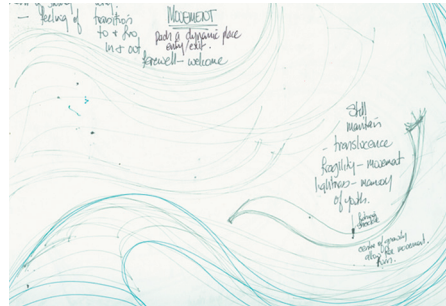 — feeling of
transitions
to & fro
in & out
MOVEMENT
such a dynamic place
entry/exit.
farewell – welcome
Still
maintain
– translucence
fragility – movement
lightness – memory
of youth.
centre of gravity
along the movement